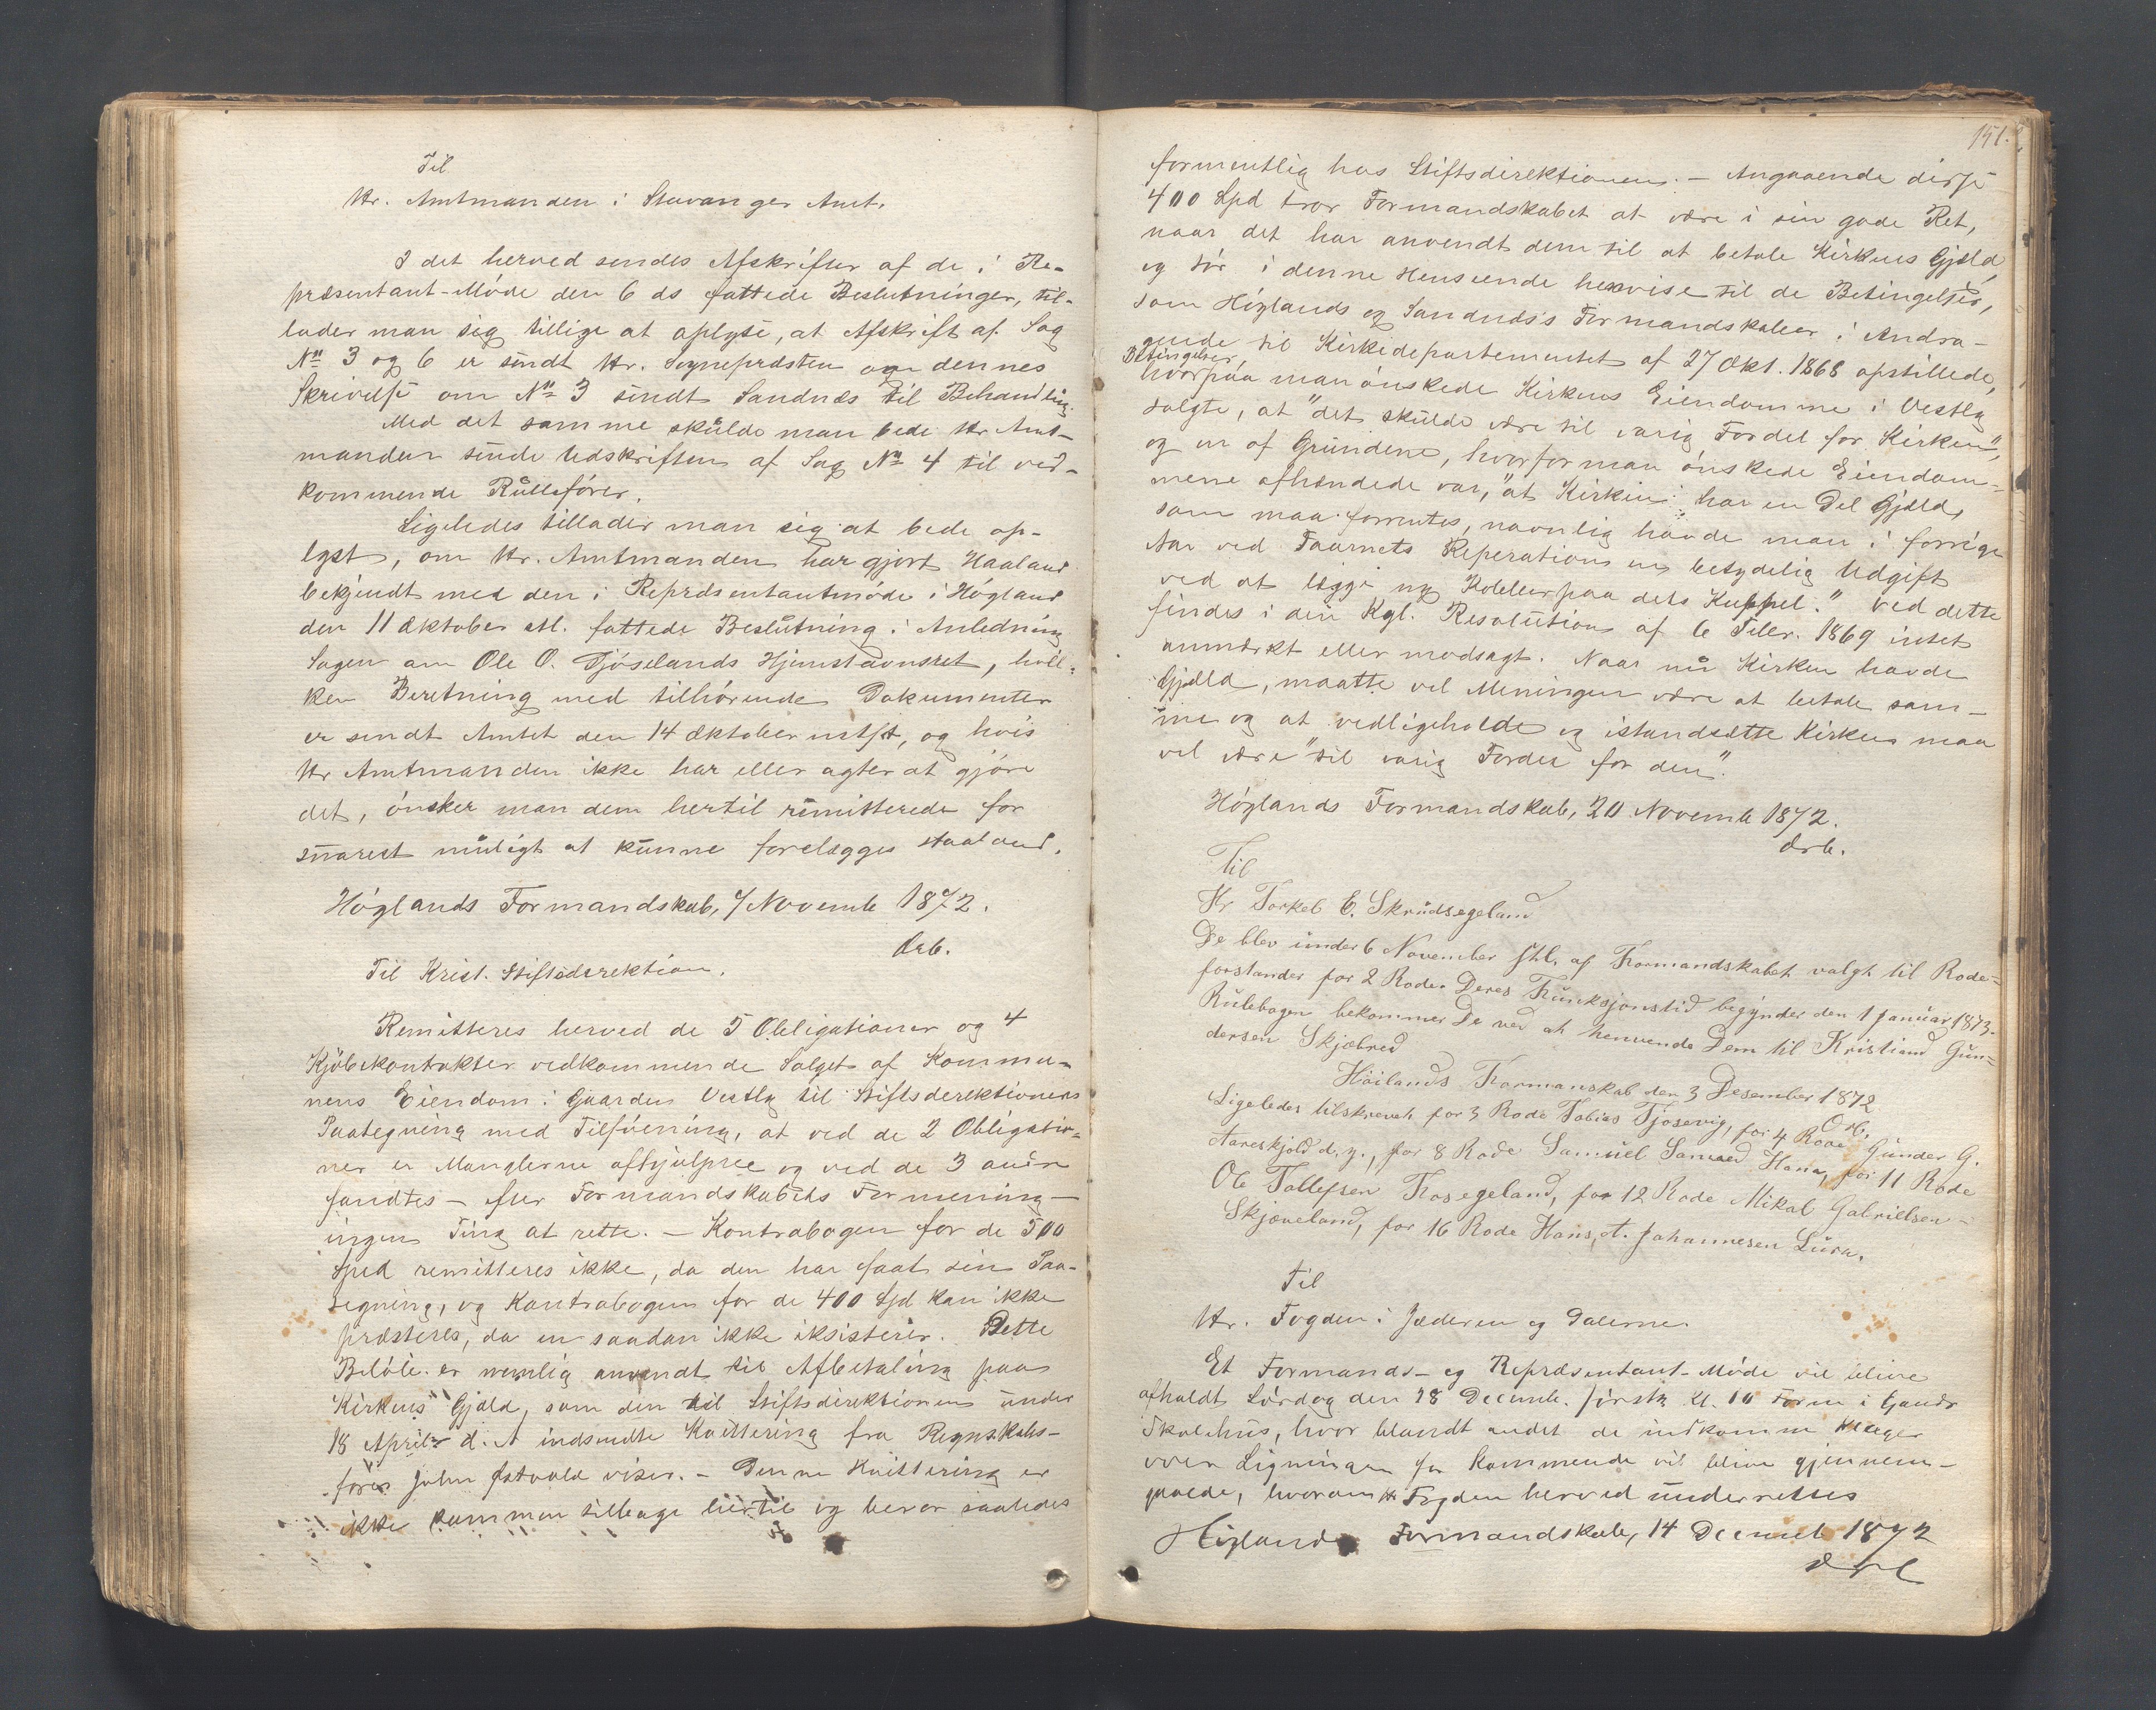 Til
Hr. Amtmanden i Stavanger Amt.
I det herved sendes Afskrifter af de i Re-
præsentant-Møde den 6 ds fattede Beslutninger, til-
lader man sig tillige at oplyse, at Afskrift af Sag
No 3 og 6 er sendt Hr. Sognepræsten og dennes
Skrivelse om No 3 sendt Sandnæs til Behandling.
Med det samme skulde man bede Hr Amt-
manden sende Udskriften af Sag No 4 til ved-
kommende Rullefører.
Ligeledes tillader man sig at bede op-
lyst, om Hr. Amtmanden har gjort Haaland
bekjendt med den i Repræsentantmøde i Høgland
den 11 Oktober stl. fattede Beslutning i Anledning
Sagen om Ole O. Gjøselands Hjemstavnsret, hvil-
ken Beretning med tilhørende Dokumenter
er sendt Amtet den 14 Oktober nstf, og hvis
Hr Amtmanden ikke har eller agter at gjøre
det, ønsker man dem hertil remitterede for
snarest muligt at kunne forelægges Haaland.
Høglands Formandskab, 9/November 1872.
Ærb.
Til Krist. Stiftsdirektion.
Remitteres herved de 5 Obligationer og 4
Kjøbekontrakter vedkommende Salget af Kommu-
nens Eiendom i Gaarden Vestly til Stiftsderektionens
Paategning med Tilføiening, at ved de 2 Obligatio-
ner er Manglerne afhjulpne og ved de 3 andre
fandtes – efter Formandskabets Formening –
ingen Ting at rette. – Kontrabogen for de 500
Spd remitteres ikke, da den har faat sin Paa-
tegning, og Kontrabogen for de 400 Spd kan ikke
præsteres, da en saadan ikke eksisterer. Dette
Beløb er nemlig anvendt til Afbetaling paa
Kirkens Gjæld, som den til Stiftsdirektionen under
18 April d. A indsendte Kvittering fra Regnskabs-
fører John Østvold viser. – Denne Kvittering er
ikke kommen tilbage hertil og beror saaledes
151.
formentlig hos Stiftsdirektionen. – Angaaende disse
400 Spd tror Formandskabet at være i sin gode Ret,
naar det har anvendt dem til at betale Kirkens Gjæld,
og tør i denne Henseende henvise til de Betingelser,
som Høglands og Sandnæs's Formandskaber i Andra-
gende til Kirkedepartementet af 27 Okt. 1868 opstillede,
Betingelser,
hvorpaa man ønskede Kirkens Eiendomme i Vestly
solgte, at "det skulde være til varig Fordel for Kirken",
og en af Grundene, hvorfor man ønskede Eiendom-
mene afhændede var, "at Kirken har en Del Gjæld,
som maa forrentes, navnlig havde man i forrige
Aar ved Taarnets Reperation en betydelig Udgift
ved at lægge ny Kobber paa dets Kuppel." Ved dette
findes i den Kgl. Resolution af 6 Febr. 1869 intet
anmærkt eller modsagt. Naar nu Kirken havde
Gjæld, maatte vel Meningen være at betale sam-
me og at vedligeholde og istandsætte Kirken maa
vel være "til varig Fordel for den".
Høglands Formandskab, 20 Novemb 1872.
Ærb.
Til
Hr Torkel E. Skrudsegeland
De blev under 6 November stl. af Formandskabet valgt til Rode-
forstander for 2 Rode. Deres Funksjonstid begynder den 1 Januar 1873.
Rulebogen bekommer De ved at henvende Dem til Kristian Gun-
dersen Skjæbred
Høilands Formanskab den 3 Desember 1872
Orb.
Ligeledes tilskrevet for 3 Rode Tobias Tjosevig, for 4 Rode Gunder G.
Aareskjold d. y., for 8 Rode Samuel Samued Hana, for 11 Rode
Ole Tollefsen Fosegeland, for 12 Rode Mikal Gabrielsen
Skjæveland, for 16 Rode Hans A. Johannesen Lura.
Til
Hr. Fogden i Jæderen og Dalerne.
Et Formands- og Repræsentant-Møde vil blive
afholdt Lørdag den 28 Decemb. førstk Kl. 10 Form i Gands
Skolehus, hvor blandt andet de indkomne Klager
over Ligningen for Kommende vil blive gjennem-
gaaede, hvorom Hr Fogden herved underrettes
Høglands Formandskab, 14 Decemb 1872
Ærb